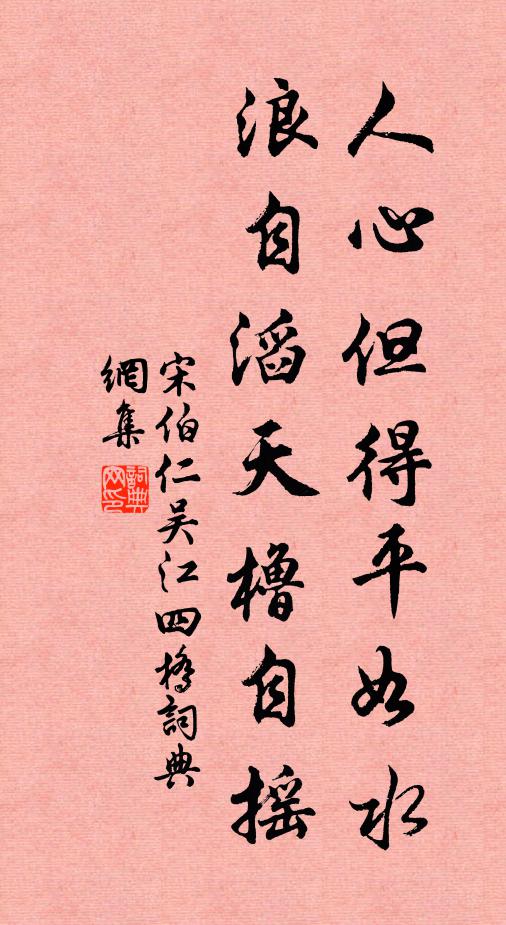 人心但得平如水
浪自滔天櫓自摇
宋伯仁吴江四橋詞典
網集
詞典
网印